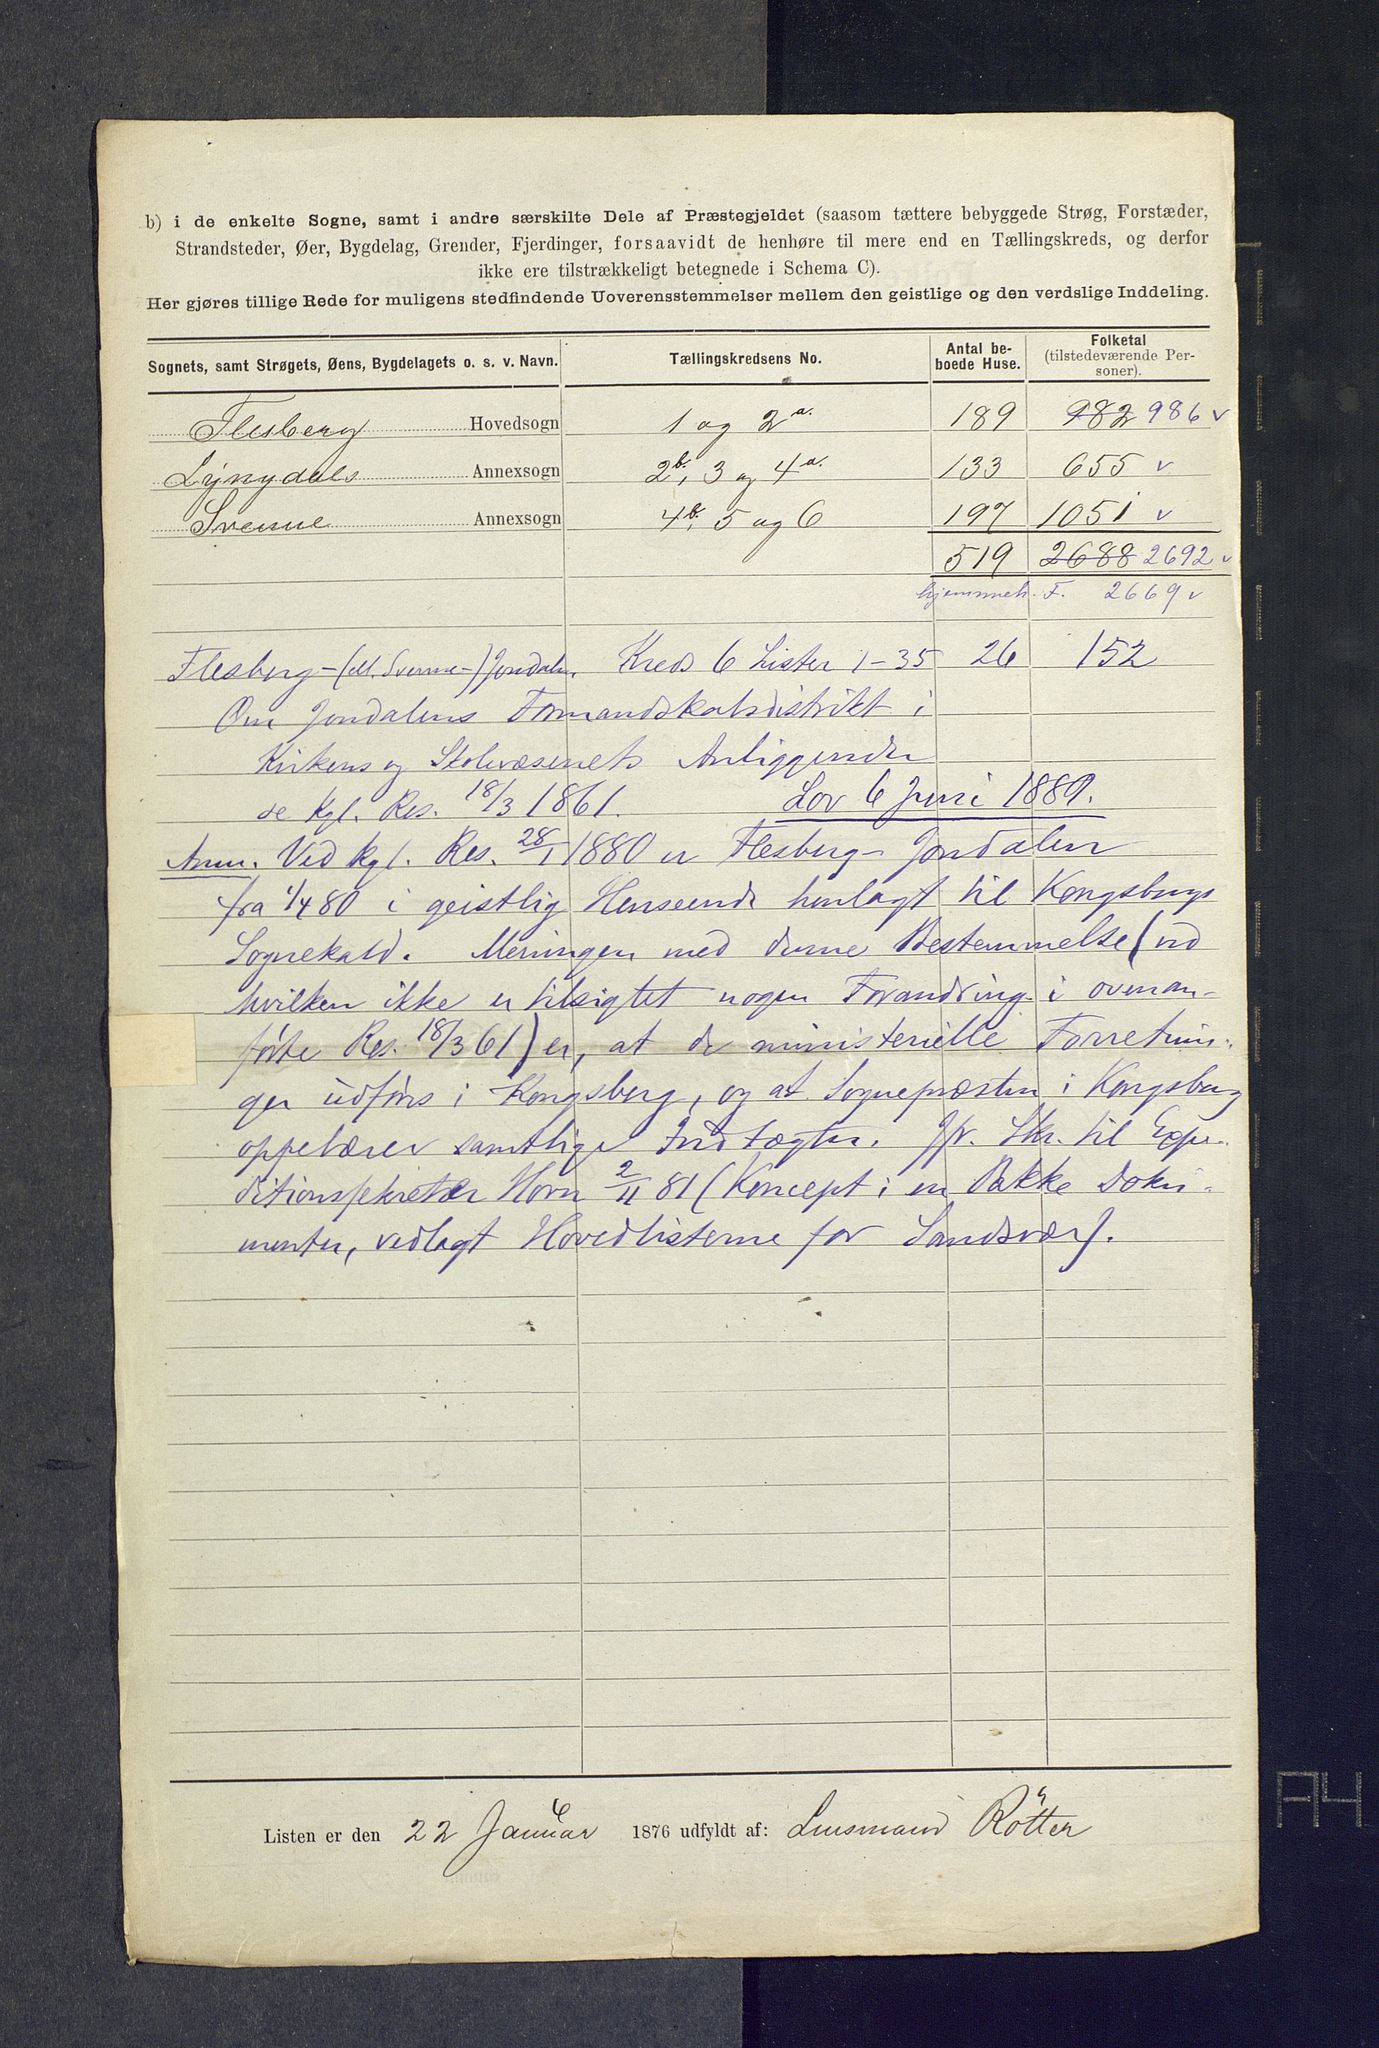 b) i de enkelte Sogne, samt i andre særskilte Dele af Præstegjeldet (saasom tættere bebyggede Strøg, Forstæder,
Strandsteder, Øer, Bygdelag, Grender, Fjerdinger, forsaavidt de henhøre til mere end en Tællingskreds, og derfor
ikke ere tilstrækkeligt betegnede i Schema C).
Her gjøres tillige Rede for muligens stedfindende Uoverensstemmelser mellem den geistlige og den verdslige Inddeling.
Sognets, samt Strøgets, Øens, Bygdelagets o. s. v. Navn. Tællingskredsens No. Antal beboede Huse. Folketal (tilstedeværende Personer).
Flesberg Hovedsogn 1 og 2a. 189 982 986 v
Lyngdals Annexsogn 2b, 3 og 4a. 133 655 v
Svenne Annexsogn 4b. 5 og 6 197 1051 v
519 2688 2692 v
hjemmeh. F. 2669 v
Flesberg-(ell. Svenne-) Jondalen. Kreds 6 Lister 1-35 26 152
Om Jondalens Formandskabsdistrikt i
Kirkens og Skolevæsenets Anliggender
se kgl. Res. 18/3 1861. Lov 6 Juni 1889.
Anm. Ved kgl. Res. 28/1 1880 er Flesberg-Jondalen
fra 1/4 80 i geistlig Henseende henlagt til Kongsbergs
Sognekald. Meningen med denne Bestemmelse (ved
hvilken ikke er tilsigtet nogen Forandring i ovenan-
førte Res. 18/3 61) er, at de ministerielle Forretnin-
ger udføres i Kongsberg, og at Sognepræsten i Kongsberg
oppebærer samtlige Indtægter. Jfr. Skr. til Expe-
ditionssekretær Horn 2/11 81 (Koncept i en Pakke Doku-
menter, vedlagt Hovedlisterne for Sandsvær).
Listen er den 22 Januar 1876 udfyldt af: Lensmand Røtter
A4